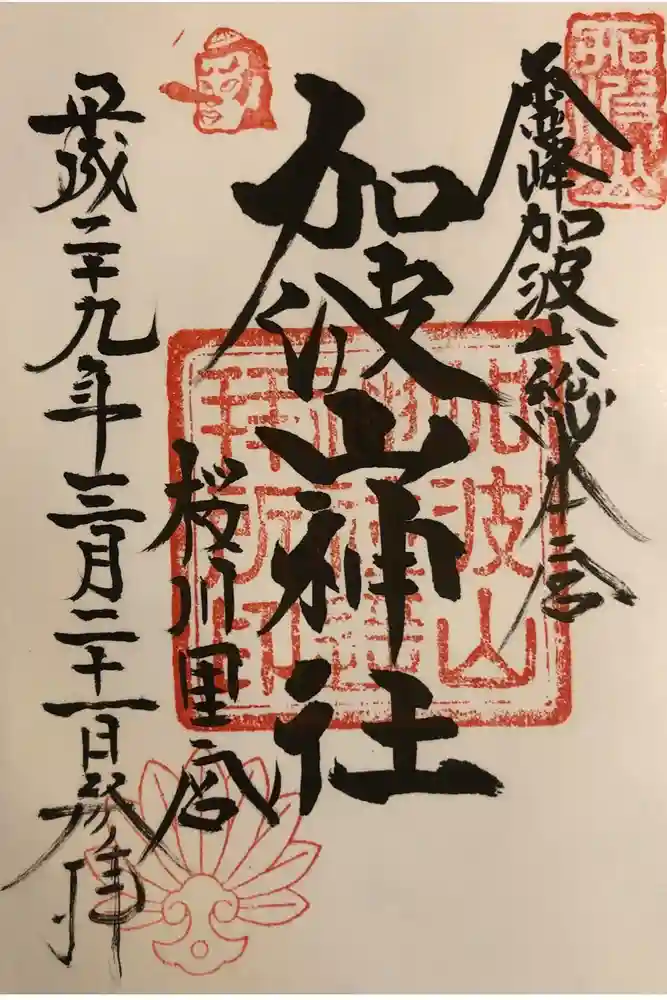 霊峰加波山総本宮
加波山
加波山神社
加波山
拝所印
桜川里宮
平成二十九年三月二十一日参拝